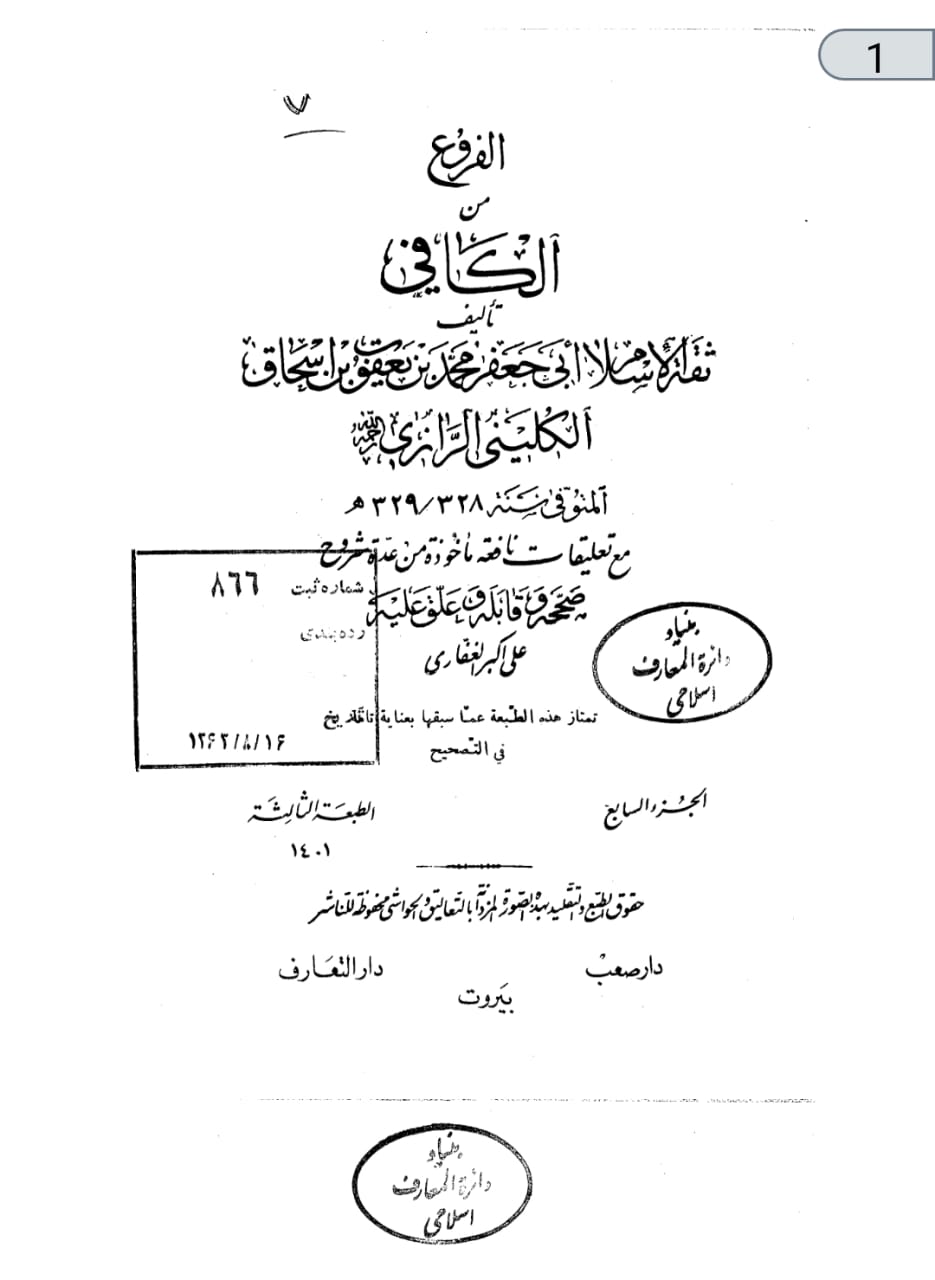 1
٧
الفروع
من
الكافي
تأليف
ثقة الإسلام أبي جعفر محمد بن يعقوب بن اسحاق
الكليني الرازي رحمه الله
المتوفى سنة ٣٢٨/٣٢٩ هـ
مع تعليقات نافعه مأخوذة من عدة شروح
صححه وقابله وعلق عليه
علي اكبر الغفاري
شماره ثبت ٨٦٦
رده بندی
بنیاد
دائرة المعارف
اسلامی
تمتاز هذه الطبعة عمّا سبقها بعناية تامّة
في التصحيح
تاریخ
الجزء السابع
الطبعة الثالثة
١٤٠١
حقوق الطبع والتقليد بهذه الصورة المزدانة بالتعاليق والحواشي محفوظة للناشر
دار صعب
دار التعارف
بيروت
بنیاد
دائرة المعارف
اسلامی